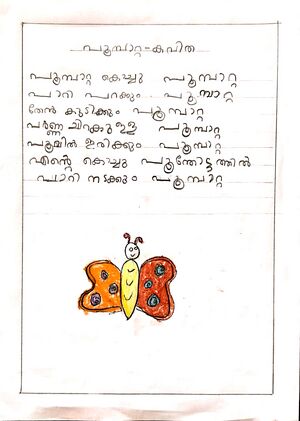 പൂമ്പാറ്റ-കവിത
പൂമ്പാറ്റ കൊച്ചു പൂമ്പാറ്റ
പാറി പറക്കും പൂമ്പാറ്റ
തേൻ കുടിക്കും പൂമ്പാറ്റ
പർണ്ണ ചിറകുള്ള പൂമ്പാറ്റ
പൂവിൽ ഇരിക്കും പൂമ്പാറ്റ
എന്റെ കൊച്ചു പൂന്തോട്ടത്തിൽ
പാറി നടക്കും പൂമ്പാറ്റ